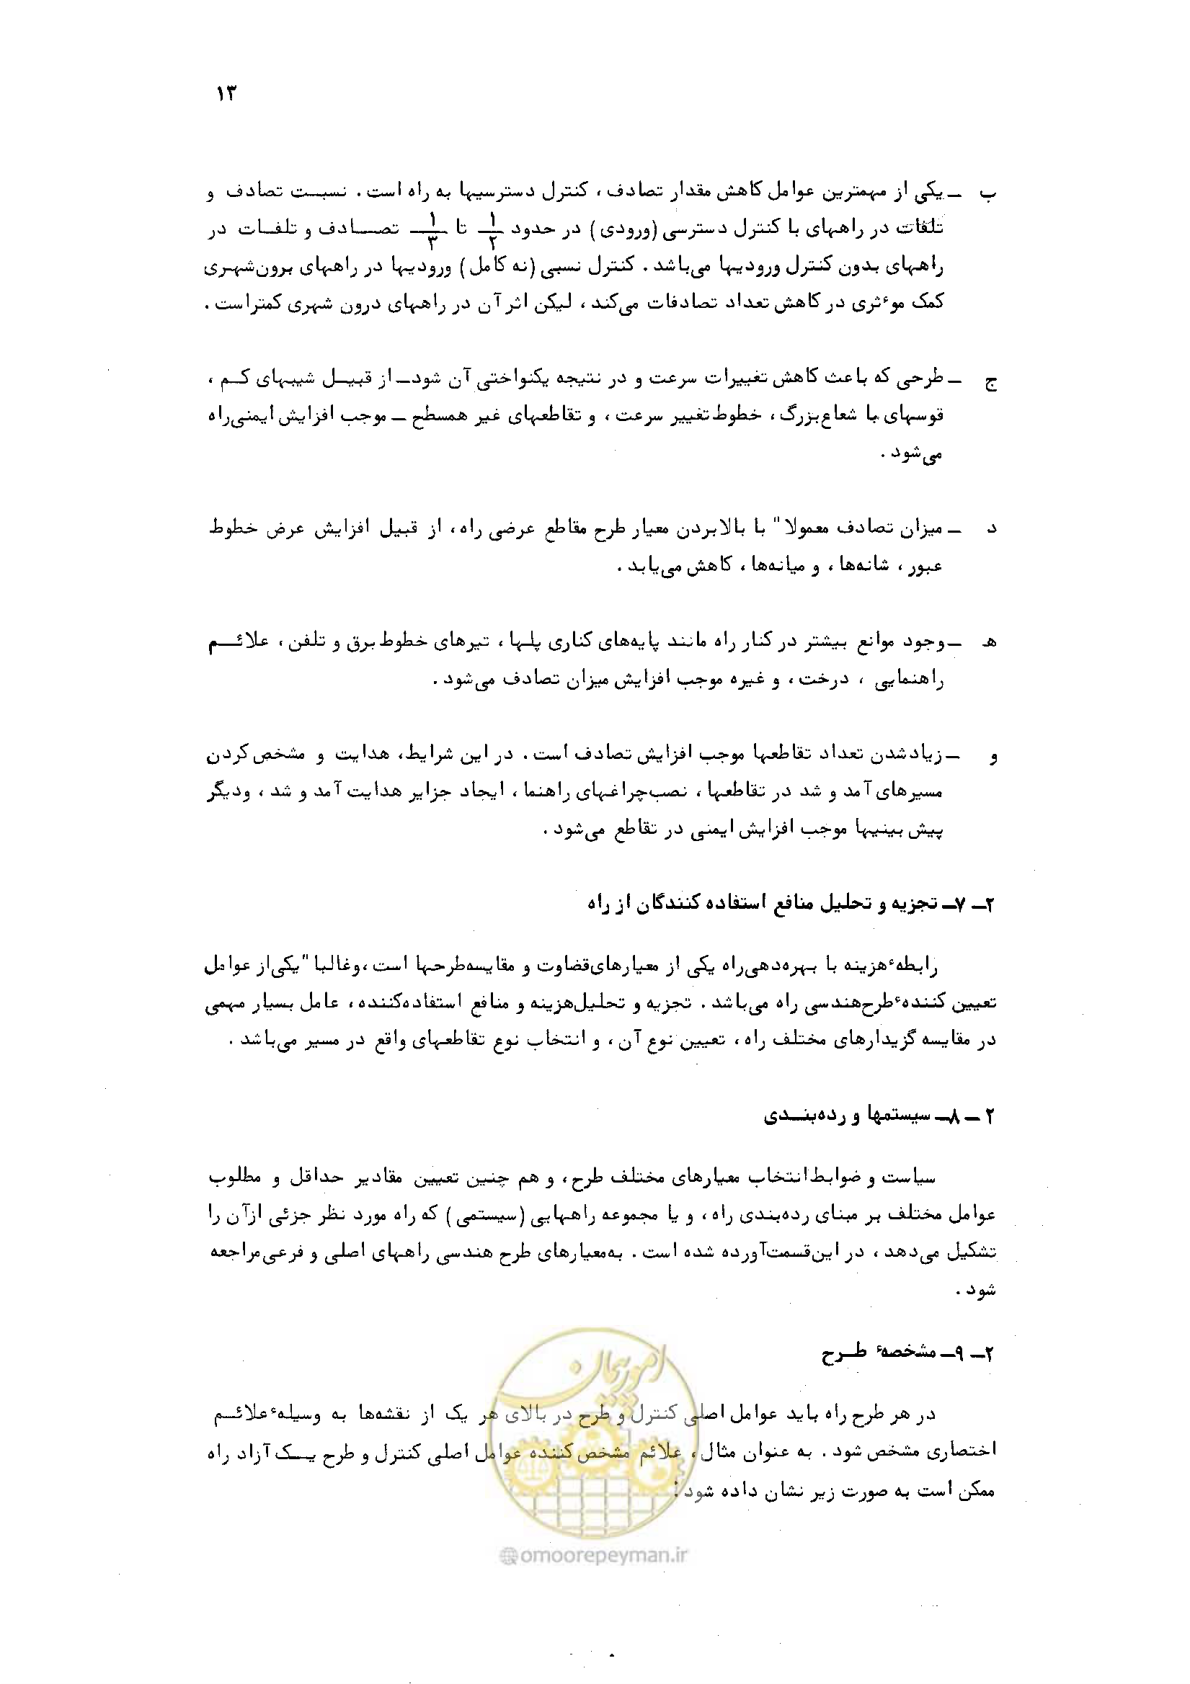 ۱۳
ب ـ یکی از مهمترین عوامل کاهش مقدار تصادف ، کنترل دسترسیها به راه است . نسبت تصادف و
تلفات در راههای با کنترل دسترسی (ورودی) در حدود ۱/۲ تا ۱/۳ تصادف و تلفات در
راههای بدون کنترل ورودیها می‌باشد . کنترل نسبی (نه کامل) ورودیها در راههای برون‌شهری
کمک موءثری در کاهش تعداد تصادفات می‌کند ، لیکن اثر آن در راههای درون شهری کمتراست .
ج ـ طرحی که باعث کاهش تغییرات سرعت و در نتیجه یکنواختی آن شود ـ از قبیل شیبهای کم ،
قوسهای با شعاع بزرگ ، خطوط تغییر سرعت ، و تقاطعهای غیر همسطح ـ موجب افزایش ایمنی‌راه
می‌شود .
د ـ میزان تصادف معمولا" با بالابردن معیار طرح مقاطع عرضی راه، از قبیل افزایش عرض خطوط
عبور ، شانه‌ها ، و میانه‌ها ، کاهش می‌یابد .
هـ ـ وجود موانع بیشتر در کنار راه مانند پایه‌های کناری پلها ، تیرهای خطوط برق و تلفن ، علائم
راهنمایی ، درخت ، و غیره موجب افزایش میزان تصادف می‌شود .
و ـ زیادشدن تعداد تقاطعها موجب افزایش تصادف است . در این شرایط، هدایت و مشخص‌کردن
مسیرهای آمد و شد در تقاطعها ، نصب‌چراغهای راهنما ، ایجاد جزایر هدایت آمد و شد ، ودیگر
پیش بینیها موجب افزایش ایمنی در تقاطع می‌شود .
۲ـ ۷ـ تجزیه و تحلیل منافع استفاده کنندگان از راه
رابطهٔ هزینه با بهره‌دهی‌راه یکی از معیارهای‌قضاوت و مقایسه‌طرحها است ،وغالبا" یکی‌از عوامل
تعیین کنندهٔ طرح‌هندسی راه می‌باشد . تجزیه و تحلیل‌هزینه و منافع استفاده‌کننده ، عامل بسیار مهمی
در مقایسه گزیدارهای مختلف راه ، تعیین نوع آن ، و انتخاب نوع تقاطعهای واقع در مسیر می‌باشد .
۲ ـ ۸ـ سیستمها و رده‌بندی
سیاست و ضوابط‌انتخاب معیارهای مختلف طرح ، و هم چنین تعیین مقادیر حداقل و مطلوب
عوامل مختلف بر مبنای رده‌بندی راه، و یا مجموعه راههایی (سیستمی) که راه مورد نظر جزئی ازآن را
تشکیل می‌دهد ، در این‌قسمت‌آورده شده است . به‌معیارهای طرح هندسی راههای اصلی و فرعی‌مراجعه
شود .
۲ـ ۹ـ مشخصهٔ طرح
در هر طرح راه باید عوامل اصلی کنترل و طرح در بالای هر یک از نقشه‌ها به وسیلهٔ علائم
اختصاری مشخص شود . به عنوان مثال ، علائم مشخص کننده عوامل اصلی کنترل و طرح یک آزاد راه
ممکن است به صورت زیر نشان داده شود :
امور پیمان
@omoorepeyman.ir